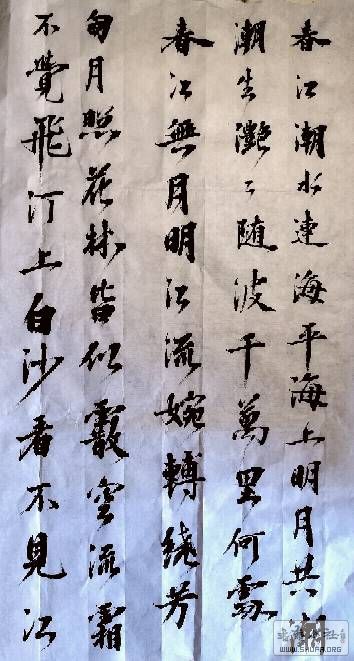 春江潮水連海平海上明月共
潮生灩々随波千萬里何處
春江無月明江流婉轉繞芳
甸月照花林皆似霰空流霜
不覺飛汀上白沙看不見江
WWW.SHUFA.ORG